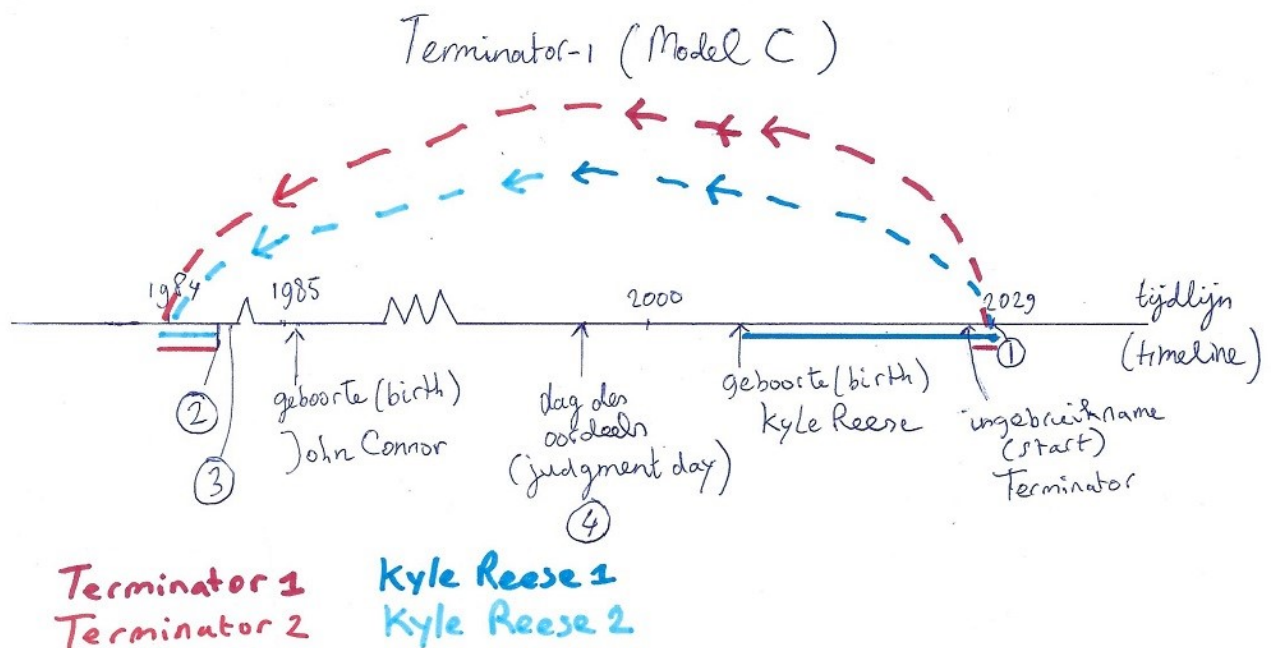 Terminator-1 (Model C)
1984
1985
2000
2029
tijdlijn
(timeline)
1
2
3
geboorte (birth)
John Connor
dag des
oordeels
(judgment day)
4
geboorte (birth)
Kyle Reese
ingebruikname
(start)
Terminator
Terminator 1
Terminator 2
Kyle Reese 1
Kyle Reese 2